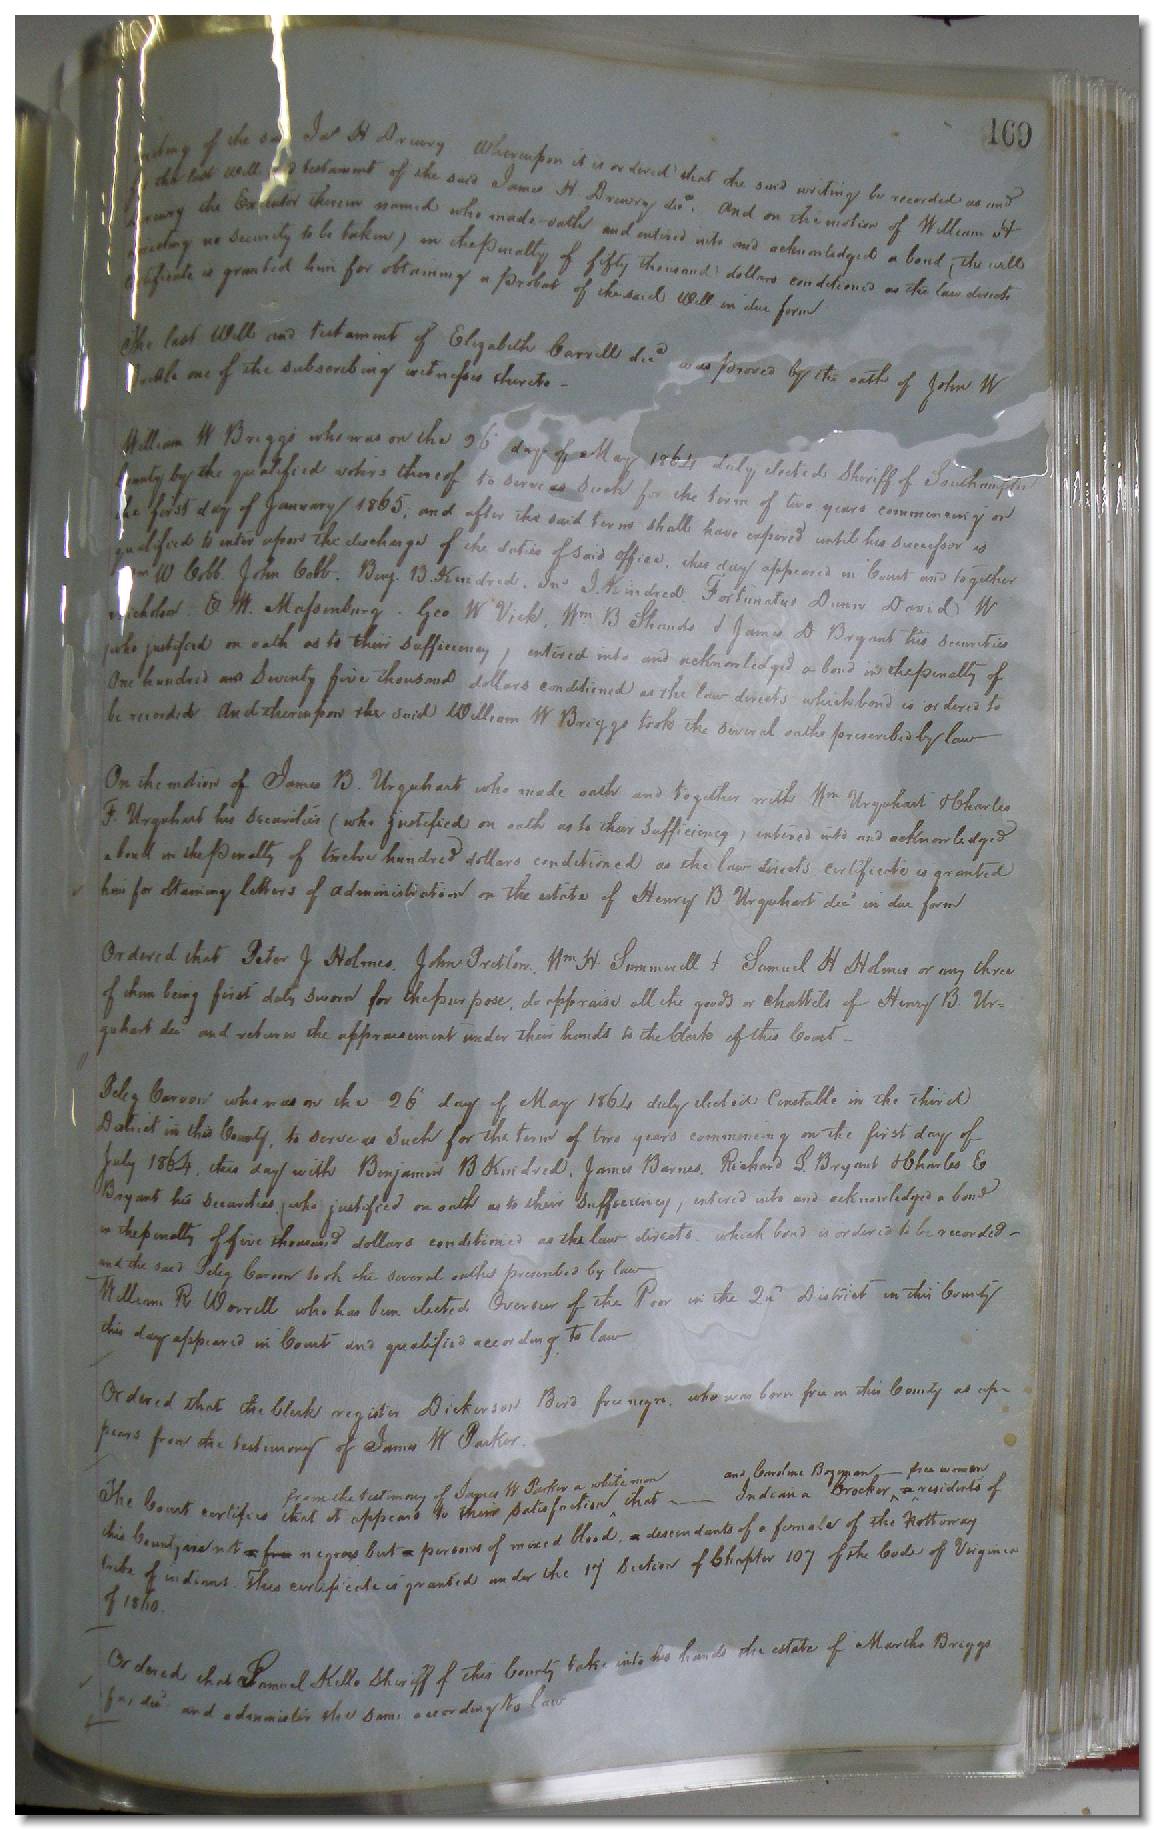 169
of the said Jas H Drewry Whereupon it is ordered that the said writing be recorded as and
the last Will and testament of the said James H Drewry decd. And on the motion of William H
Drewry the Executor therein named who made oath and entered into and acknowledged a bond (the will
no security to be taken) in the penalty of fifty thousand dollars conditioned as the law directs
certificate is granted him for obtaining a probat of the said Will in due form
The last Will and testament of Elizabeth Carrell decd was proved by the oath of John W
one of the subscribing witnesses thereto -
William W Briggs who was on the 26 day of May 1864 duly elected Sheriff of Southampton
County by the qualified voters thereof to serve as such for the term of two years commencing on
the first day of January 1865, and after the said term shall have expired until his successor is
qualified to enter upon the discharge of the duties of said office, this day appeared in Court and together
W Cobb. John Cobb. Benj. B. Kindred. Jno J. Kindred Fortunatus Dunn David W
O. W. Massenburg. Geo W Vick, Wm B Shands & James D Bryant his securities
(who justified on oath as to their sufficiency) entered into and acknowledged a bond in the penalty of
One hundred and Seventy five thousand dollars conditioned as the law directs which bond is ordered to
be recorded And thereupon the said William W Briggs took the several oaths prescribed by law
On the motion of James B. Urquhart who made oath and together with Wm Urquhart & Charles
F. Urquhart his securities (who justified on oath as to their sufficiency) entered into and acknowledged
a bond in the penalty of twelve hundred dollars conditioned as the law directs certificate is granted
him for obtaining letters of administration on the estate of Henry B Urquhart decd in due form
Ordered that Peter J Holmes, John Pretlow, Wm H. Summerell & Samuel H Holmes or any three
of them being first duly sworn for the purpose, do appraise all the goods or chattels of Henry B. Ur-
quhart decd and return the appraisement under their hands to the Clerk of this Court -
Peleg Carson who was on the 26 day of May 1864 duly elected Constable in the third
District in this County, to serve as such for the term of two years commencing on the first day of
July 1864, this day with Benjamin B Kindred, James Barnes, Richard L. Bryant & Charles E
Bryant his securities, (who justified on oath as to their sufficiency) entered into and acknowledged a bond
in the penalty of five thousand dollars conditioned as the law directs. which bond is ordered to be recorded -
and the said Peleg Carson took the several oaths prescribed by law
William R Worrell who has been elected Overseer of the Poor in the 2d District in this County
this day appeared in Court and qualified according to law
Ordered that the Clerk register Dickerson Bird free negro, who was born free in this County as ap-
pears from the testimony of James W Parker.
from the testimony of James W Parker a white man and Caroline Bozeman - free women
The Court certifies that it appears to their satisfaction that Indeana Crocker, a residents of
this County are not a free negroes but a persons of mixed blood, a descendants of a female of the Nottoway
tribe of indians. This certificate is granted under the 17 Section of Chapter 107 of the Code of Virginia
of 1860.
Ordered that Samuel Kello Sheriff of this County take into his hands the estate of Martha Briggs
decd and administer the same according to law